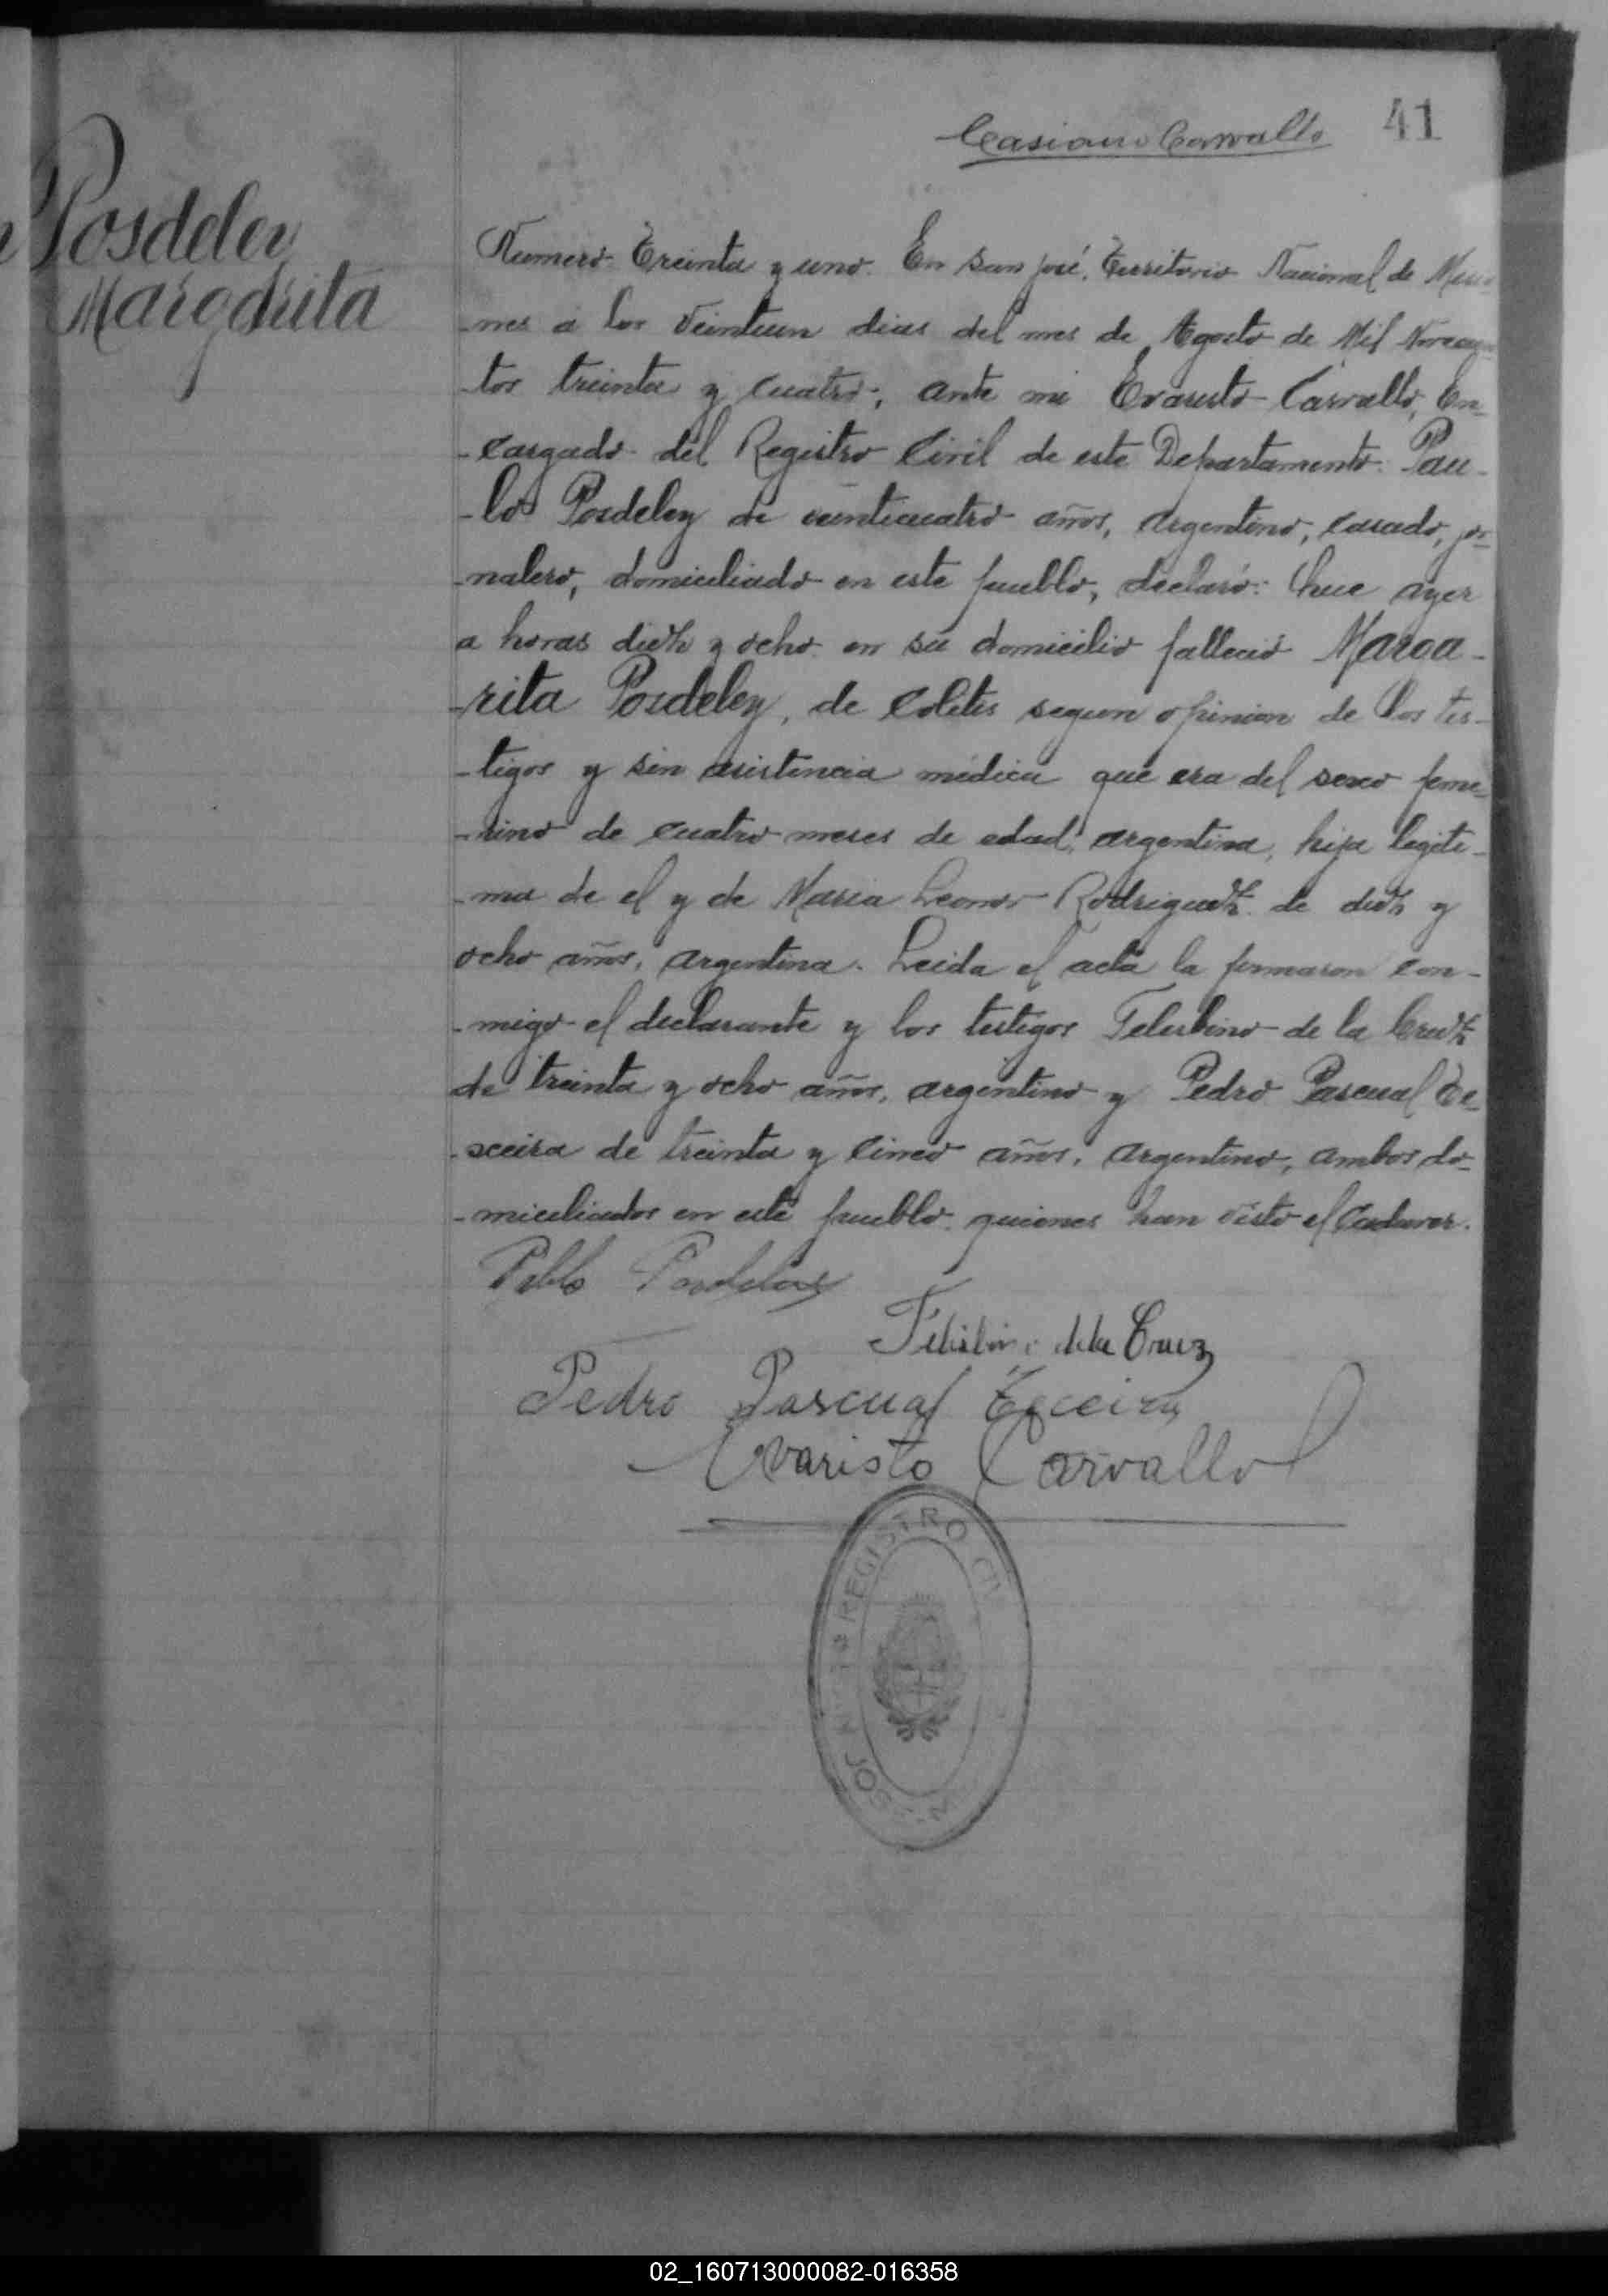 Casiano Carvallo 41
Posdeley
Margarita
Numero Treinta y uno. En San José, Territorio Nacional de Misio-
-nes a los Veintiun dias del mes de Agosto de Mil Novecien-
-tos treinta y cuatro, ante mi Evaristo Carvallo, En-
-cargado del Registro Civil de este Departamento. Pau-
-lo Posdeley de veinticuatro años, argentino, casado, jor-
-nalero, domiciliado en este pueblo, declaró: Que ayer
a horas diez y ocho en su domicilio falleció Marga-
-rita Posdeley, de Colitis segun opinion de los tes-
-tigos y sin asistencia médica que era del sexo feme-
-nino de cuatro meses de edad, argentina, hija legiti-
-ma de el y de Maria Leonor Rodriguez de diez y
ocho años, argentina. Leida el acta la firmaron con-
-migo el declarante y los testigos Telesbino de la Cruz
de treinta y ocho años, argentino y Pedro Pascual Te-
-xceira de treinta y cinco años, argentino, ambos do-
-miciliados en este pueblo quienes han visto el Cadaver.
Pablo Posdeley
de la Cruz
Pedro Pascual
Evaristo Carvallo
REGISTRO CI
JOSE
02_160713000082-016358